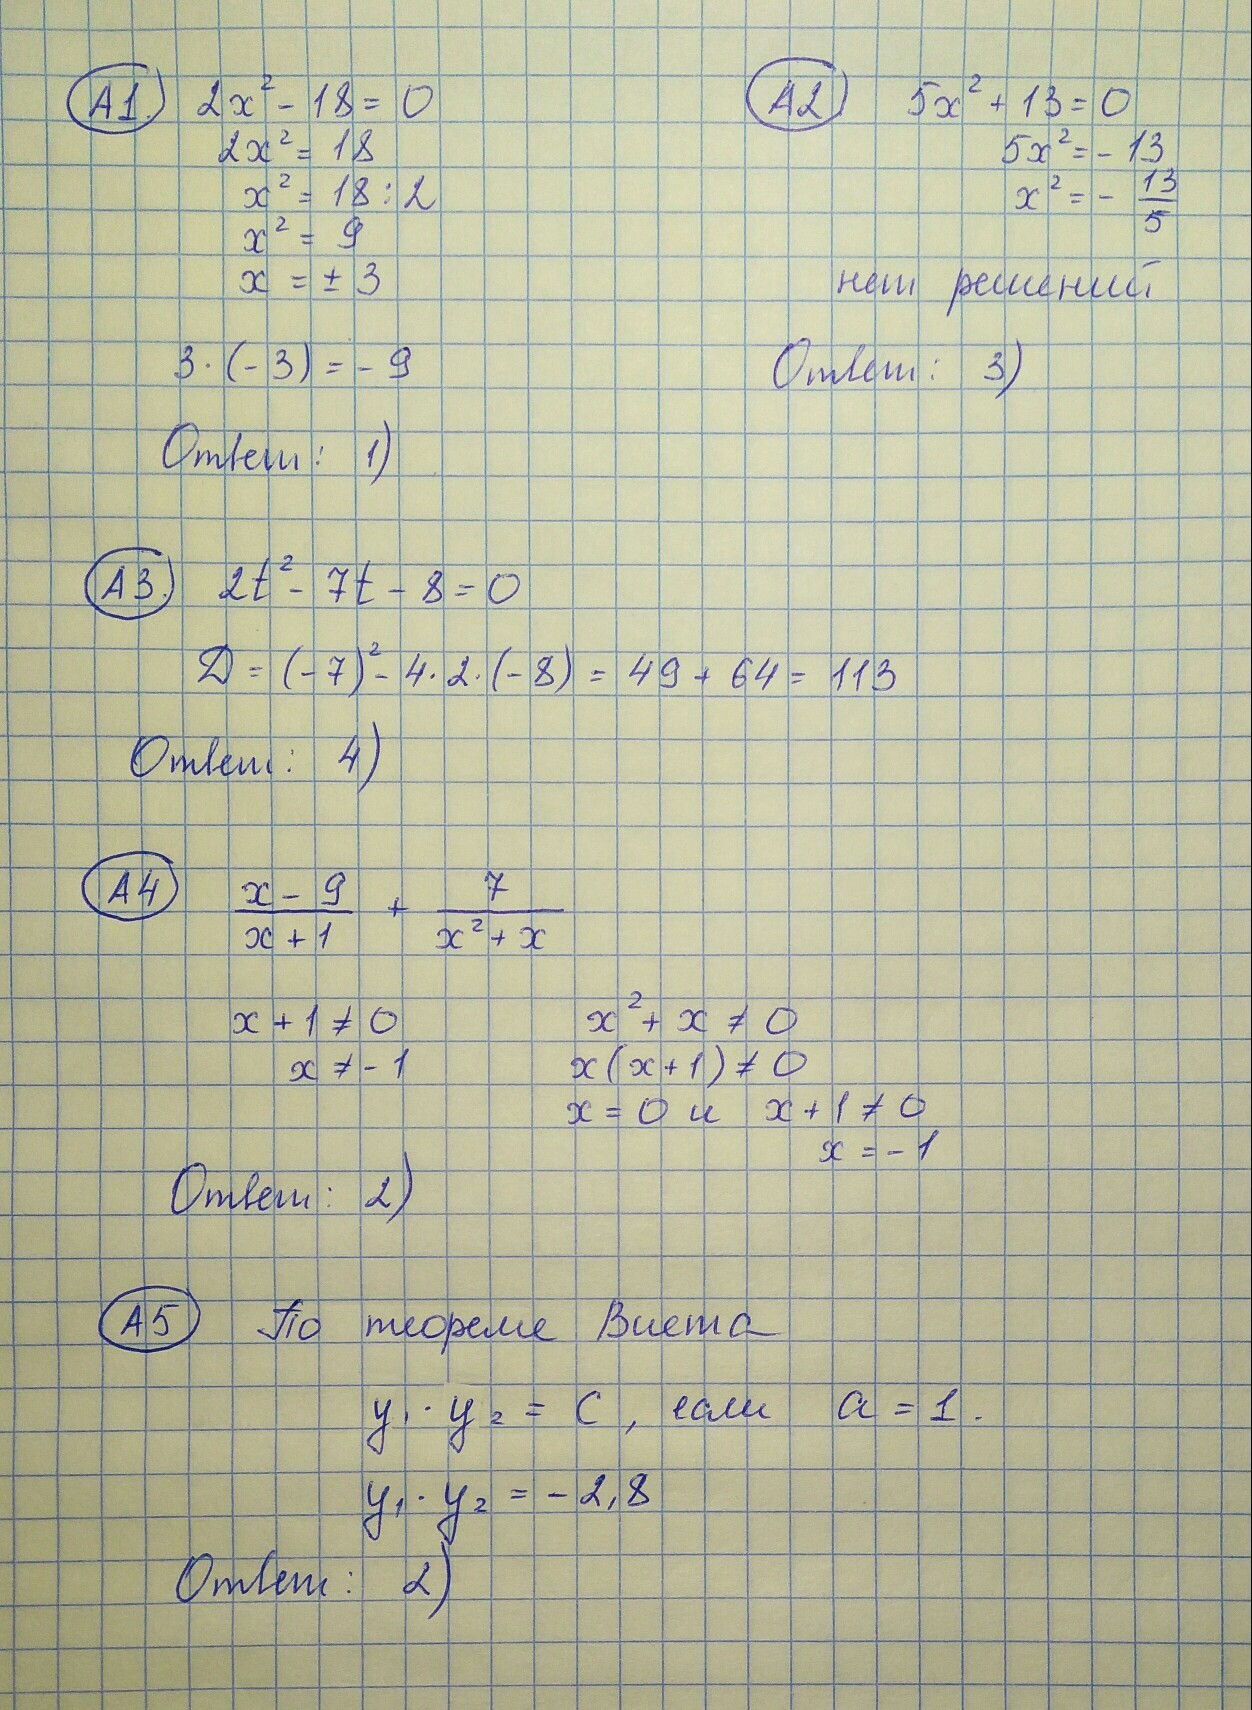 А1. 2x² - 18 = 0
2x² = 18
x² = 18 : 2
x² = 9
x = ± 3
3 · (-3) = - 9
Ответ: 1)
А2 5x² + 13 = 0
5x² = - 13
x² = - 13/5
нет решений
Ответ: 3)
А3. 2t² - 7t - 8 = 0
Д = (-7)² - 4 · 2 · (-8) = 49 + 64 = 113
Ответ: 4)
А4 (x - 9)/(x + 1) + 7/(x² + x)
x + 1 ≠ 0
x ≠ - 1
x² + x ≠ 0
x(x+1) ≠ 0
x = 0 и x + 1 ≠ 0
x = - 1
Ответ: 2)
А5 По теореме Виета
y₁ · y₂ = C, если a = 1.
y₁ · y₂ = - 2,8
Ответ: 2)